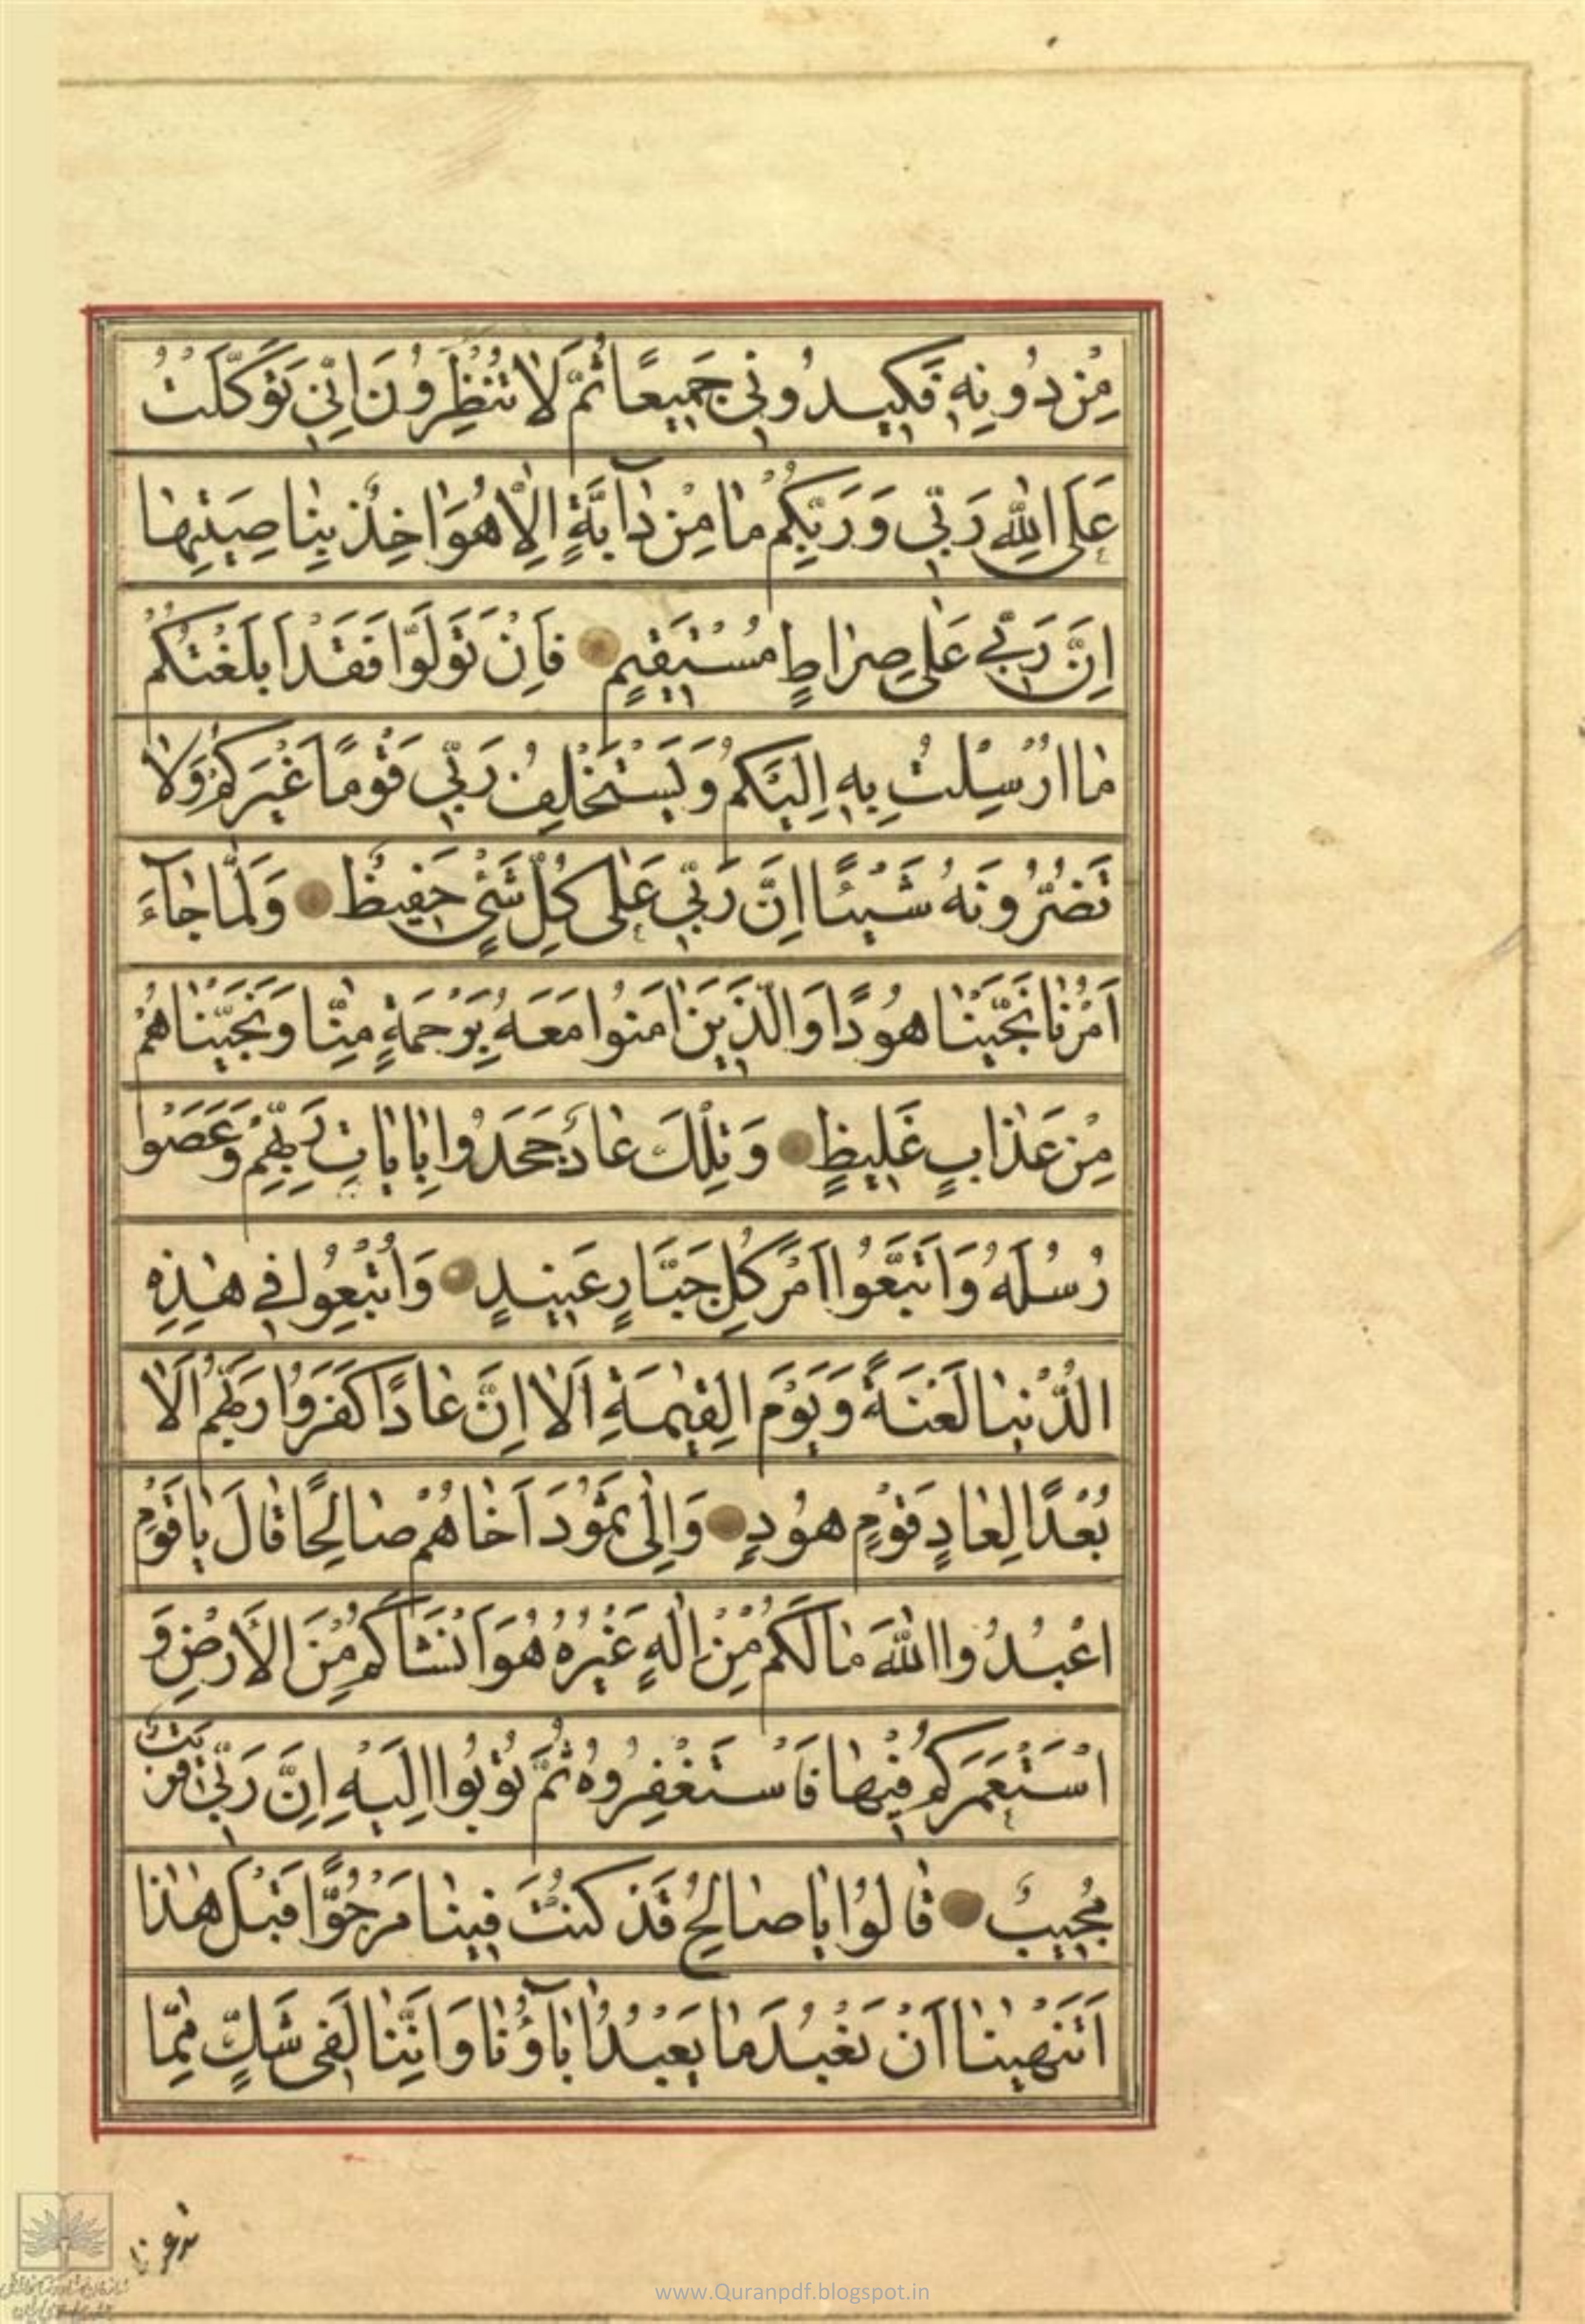 مِنْ دُونِهِ فَكِيدُونِي جَمِيعًا ثُمَّ لَا تُنْظِرُونَ اِنِّي تَوَكَّلْتُ
عَلَى اللّٰهِ رَبِّي وَرَبِّكُمْ مٰا مِنْ دٰآبَّةٍ اِلّٰا هُوَ اٰخِذٌ بِنٰاصِيَتِهٰا
اِنَّ رَبِّي عَلٰى صِرٰاطٍ مُسْتَقِيمٍ فَاِنْ تَوَلَّوْا فَقَدْ اَبْلَغْتُكُمْ
مٰا اُرْسِلْتُ بِهِ اِلَيْكُمْ وَيَسْتَخْلِفُ رَبِّي قَوْمًا غَيْرَكُمْ وَلٰا
تَضُرُّونَهُ شَيْئًا اِنَّ رَبِّي عَلٰى كُلِّ شَيْءٍ حَفِيظٌ وَلَمّٰا جٰآءَ
اَمْرُنٰا نَجَّيْنٰا هُودًا وَالَّذِينَ اٰمَنُوا مَعَهُ بِرَحْمَةٍ مِنّٰا وَنَجَّيْنٰاهُمْ
مِنْ عَذٰابٍ غَلِيظٍ وَتِلْكَ عٰادٌ جَحَدُوا بِاٰيٰاتِ رَبِّهِمْ وَعَصَوْا
رُسُلَهُ وَاتَّبَعُوا اَمْرَ كُلِّ جَبّٰارٍ عَنِيدٍ وَاُتْبِعُوا فِي هٰذِهِ
الدُّنْيٰا لَعْنَةً وَيَوْمَ الْقِيٰمَةِ اَلٰا اِنَّ عٰادًا كَفَرُوا رَبَّهُمْ اَلٰا
بُعْدًا لِعٰادٍ قَوْمِ هُودٍ وَاِلٰى ثَمُودَ اَخٰاهُمْ صٰالِحًا قٰالَ يٰا قَوْمِ
اعْبُدُوا اللّٰهَ مٰا لَكُمْ مِنْ اِلٰهٍ غَيْرُهُ هُوَ اَنْشَاَكُمْ مِنَ الْاَرْضِ وَ
اسْتَعْمَرَكُمْ فِيهٰا فَاسْتَغْفِرُوهُ ثُمَّ تُوبُوا اِلَيْهِ اِنَّ رَبِّي قَرِيبٌ
مُجِيبٌ قٰالُوا يٰا صٰالِحُ قَدْ كُنْتَ فِينٰا مَرْجُوًّا قَبْلَ هٰذٰا
اَتَنْهٰينٰا اَنْ نَعْبُدَ مٰا يَعْبُدُ اٰبٰآؤُنٰا وَاِنَّنٰا لَفِي شَكٍّ مِمّٰا
www.Quranpdf.blogspot.in